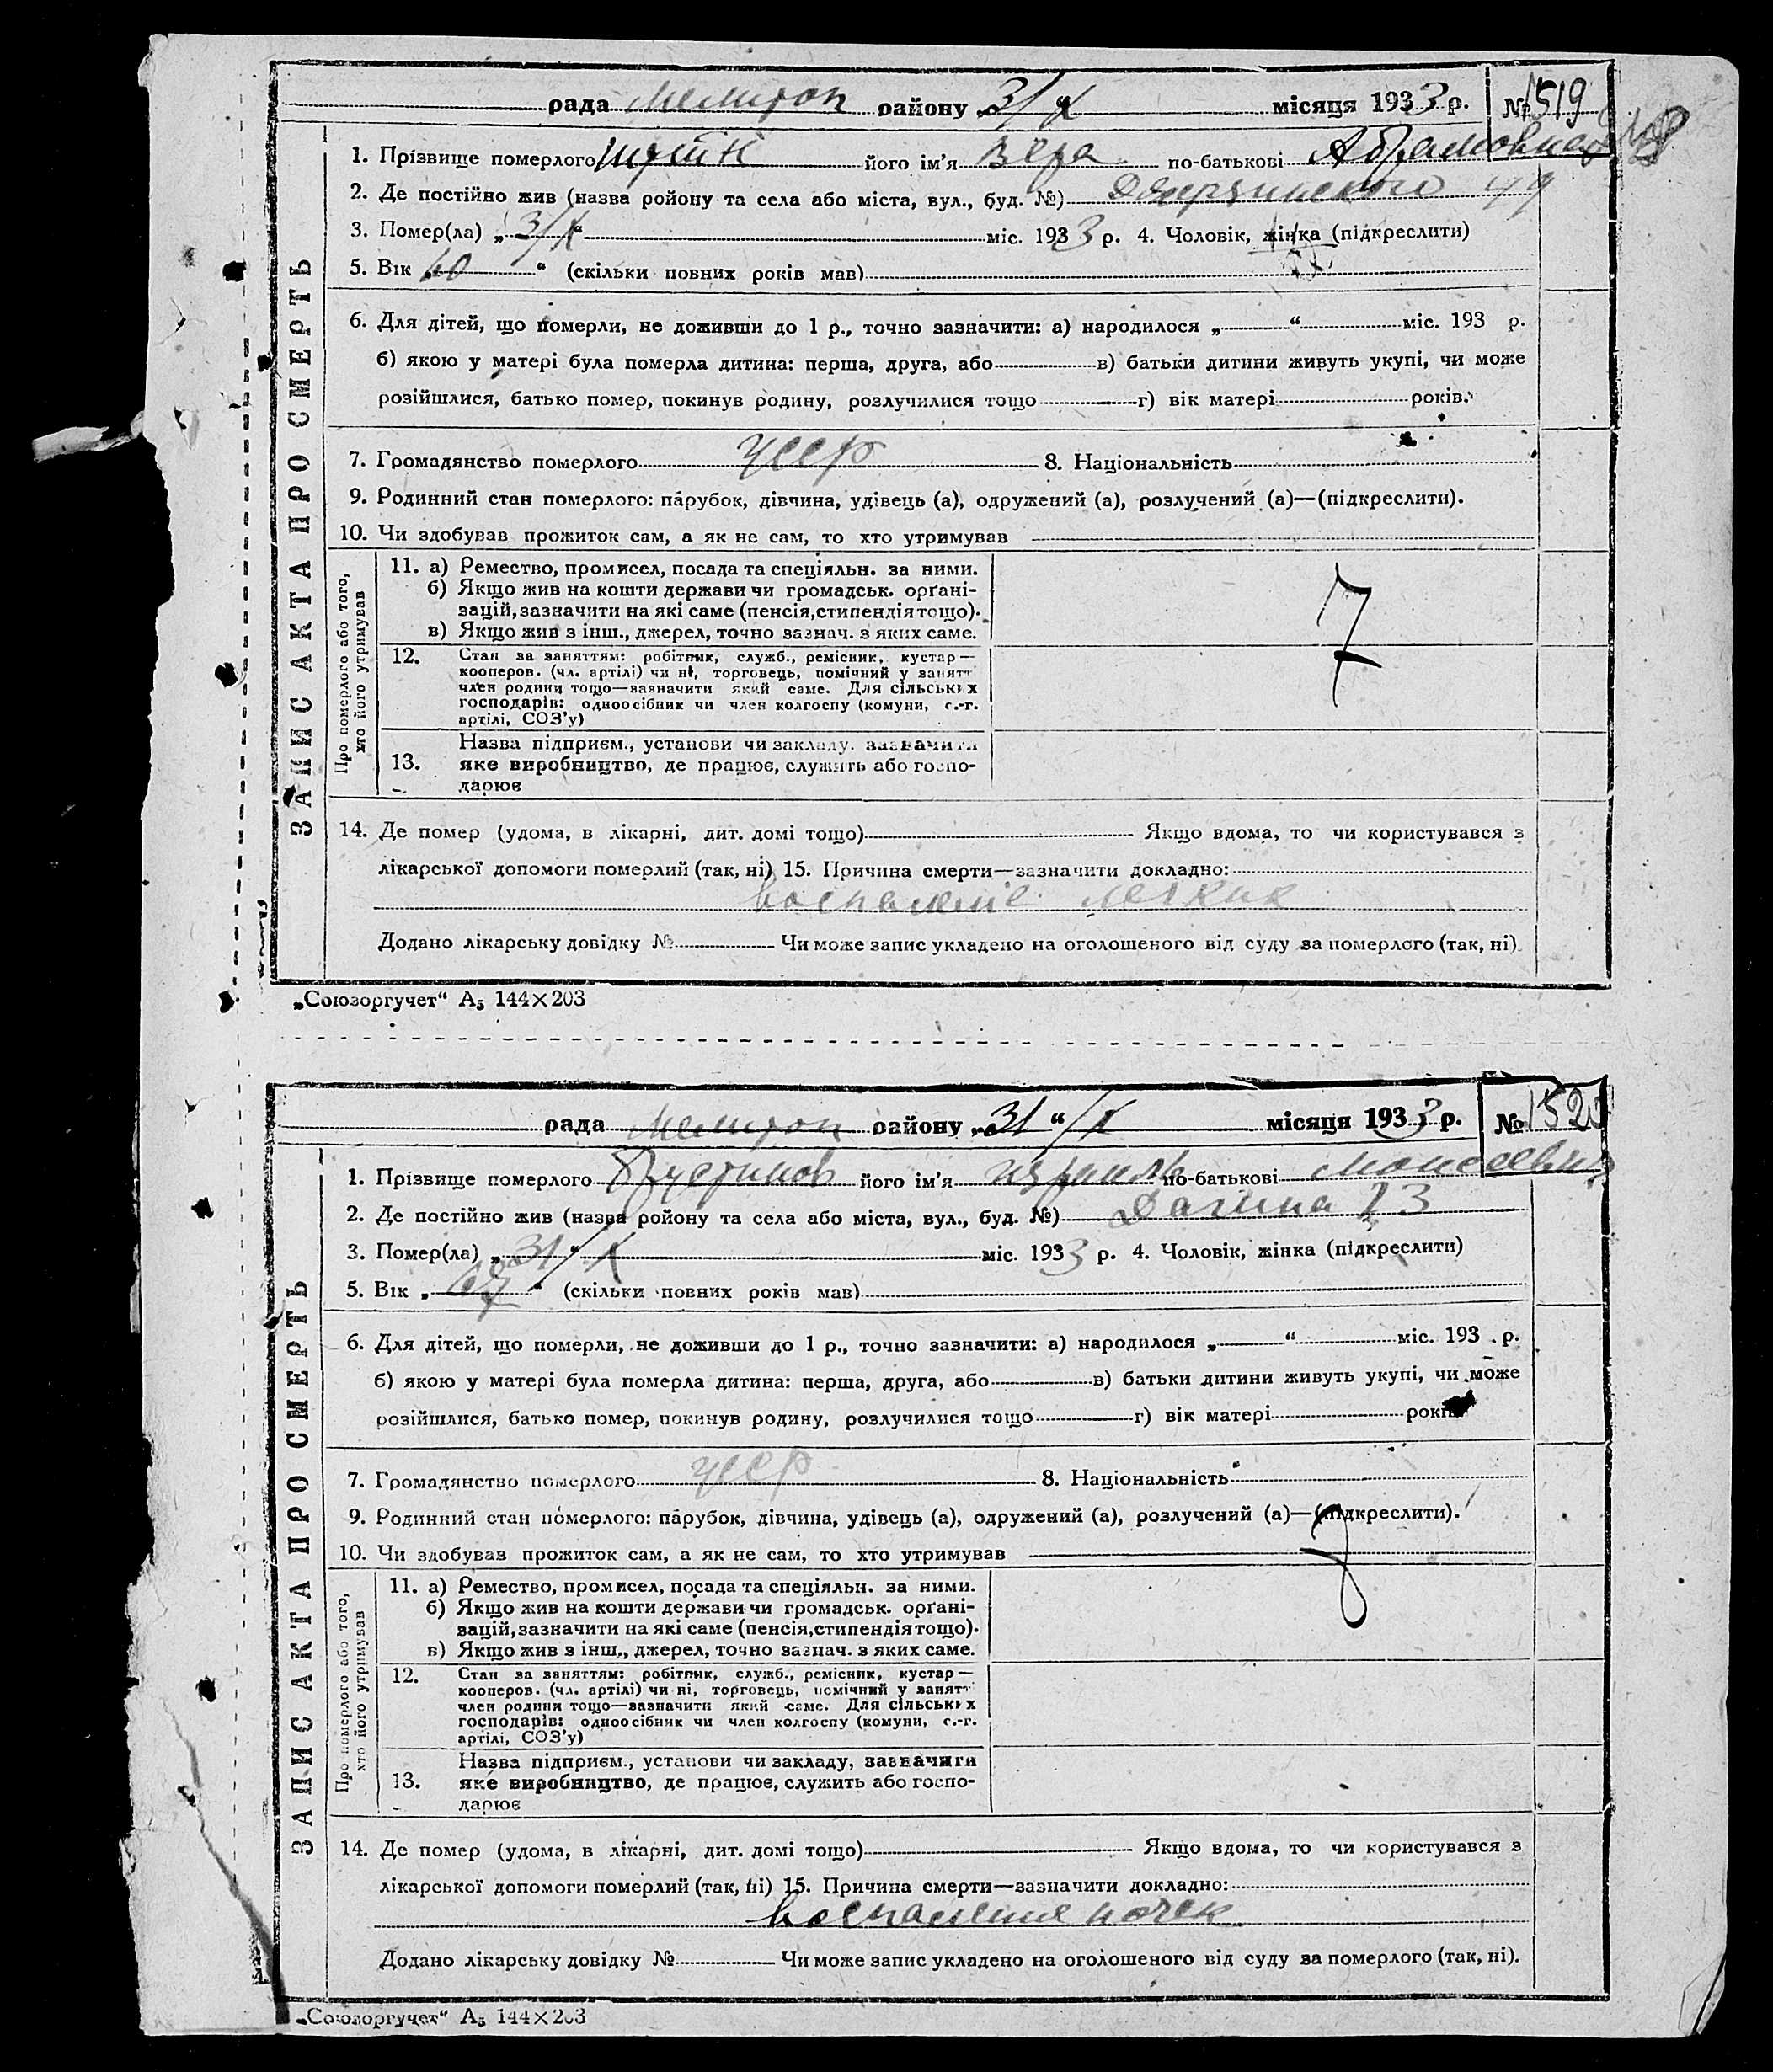 рада Мелитоп району 31/X місяця 1933 р. № 1519
1. Прізвище померлого його ім'я Вера по-батькові Абрамовна
2. Де постійно жив (назва ройону та села або міста, вул., буд. №) Дзержинского 49
3. Помер(ла) „31/X“ міс. 1933 р. 4. Чоловік, жінка (підкреслити)
5. Вік „60“ (скільки повних років мав)
6. Для дітей, що померли, не доживши до 1 р., точно зазначити: а) народилося „ “ міс. 193 р.
б) якою у матері була померла дитина: перша, друга, або в) батьки дитини живуть укупі, чи може
розійшлися, батько помер, покинув родину, розлучилися тощо г) вік матері років.
7. Громадянство померлого УССР 8. Національність
9. Родинний стан померлого: парубок, дівчина, удівець (а), одружений (а), розлучений (а)—(підкреслити).
10. Чи здобував прожиток сам, а як не сам, то хто утримував
ЗАПИС АКТА ПРО СМЕРТЬ
Про померлого або того,
хто його утримував
11. а) Ремество, промисел, посада та спеціяльн. за ними.
б) Якщо жив на кошти держави чи громадськ. орґані-
зацій, зазначити на які саме (пенсія, стипендія тощо).
в) Якщо жив з інш., джерел, точно зазнач. з яких саме.
7
12. Стан за заняттям: робітник, служб., ремісник, кустар—
кооперов. (чл. артілі) чи ні, торговець, помічний у занятт
член родини тощо—зазначити який саме. Для сільських
господарів: одноосібник чи член колгоспу (комуни, с.-г.
артілі, СОЗ'у)
13. Назва підприєм., установи чи закладу, зазначити
яке виробництво, де працює, служить або госпо-
дарює
14. Де помер (удома, в лікарні, дит. домі тощо) Якщо вдома, то чи користувався з
лікарської допомоги померлий (так, ні) 15. Причина смерти—зазначити докладно:
воспаление легких
Додано лікарську довідку № Чи може запис укладено на оголошеного від суду за померлого (так, ні).
„Союзоргучет“ А5 144×203
рада Мелитоп району „31“/X місяця 1933 р. № 1520
1. Прізвище померлого його ім'я Израиль по-батькові Моисеевич
2. Де постійно жив (назва ройону та села або міста, вул., буд. №) 23
3. Помер(ла) „31“/X міс. 1933 р. 4. Чоловік, жінка (підкреслити)
5. Вік „67“ (скільки повних років мав)
6. Для дітей, що померли, не доживши до 1 р., точно зазначити: а) народилося „ “ міс. 193 р.
б) якою у матері була померла дитина: перша, друга, або в) батьки дитини живуть укупі, чи може
розійшлися, батько помер, покинув родину, розлучилися тощо г) вік матері років
7. Громадянство померлого УССР 8. Національність
9. Родинний стан померлого: парубок, дівчина, удівець (а), одружений (а), розлучений (а)—(підкреслити).
10. Чи здобував прожиток сам, а як не сам, то хто утримував
ЗАПИС АКТА ПРО СМЕРТЬ
Про померлого або того,
хто його утримував
11. а) Ремество, промисел, посада та спеціяльн. за ними.
б) Якщо жив на кошти держави чи громадськ. орґані-
зацій, зазначити на які саме (пенсія, стипендія тощо).
в) Якщо жив з інш., джерел, точно зазнач. з яких саме.
12. Стан за заняттям: робітник, служб., ремісник, кустар—
кооперов. (чл. артілі) чи ні, торговець, помічний у занятт
член родини тощо—зазначити який саме. Для сільських
господарів: одноосібник чи член колгоспу (комуни, с.-г.
артілі, СОЗ'у)
13. Назва підприєм., установи чи закладу, зазначити
яке виробництво, де працює, служить або госпо-
дарює
14. Де помер (удома, в лікарні, дит. домі тощо) Якщо вдома, то чи користувався з
лікарської допомоги померлий (так, ні) 15. Причина смерти—зазначити докладно:
воспаление почек
Додано лікарську довідку № Чи може запис укладено на оголошеного від суду за померлого (так, ні).
„Союзоргучет“ А5 144×203